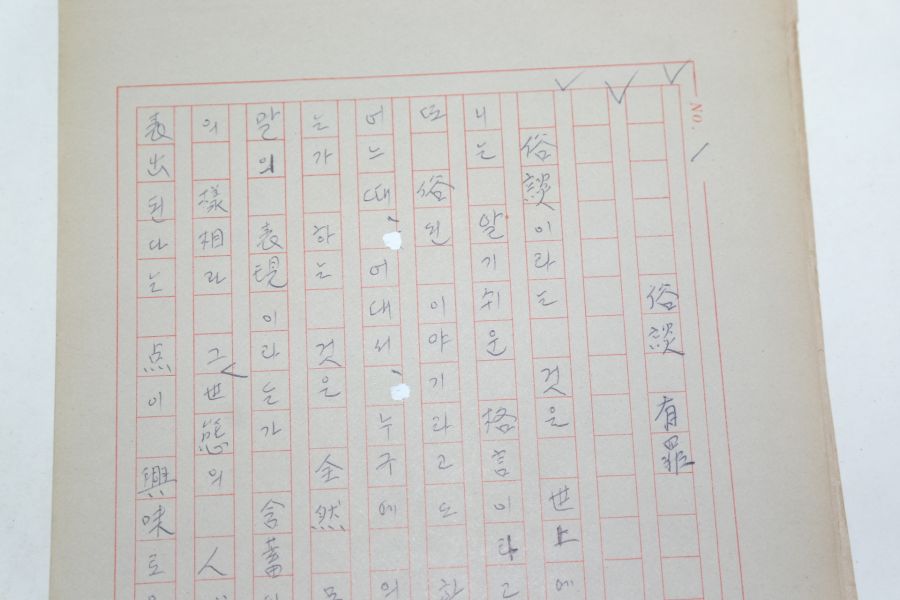 No. 1
俗談 有罪
俗談이라는 것을 世上에
니는 알기쉬운 格言이다고
또 俗된 이야기라고도 한
어느때 어대서 누구에 의
는가 하는 것은 全然
말의 表現이라는가 含蓄
의 樣相라 그 世態의 人
表出된다는 点이 興味로